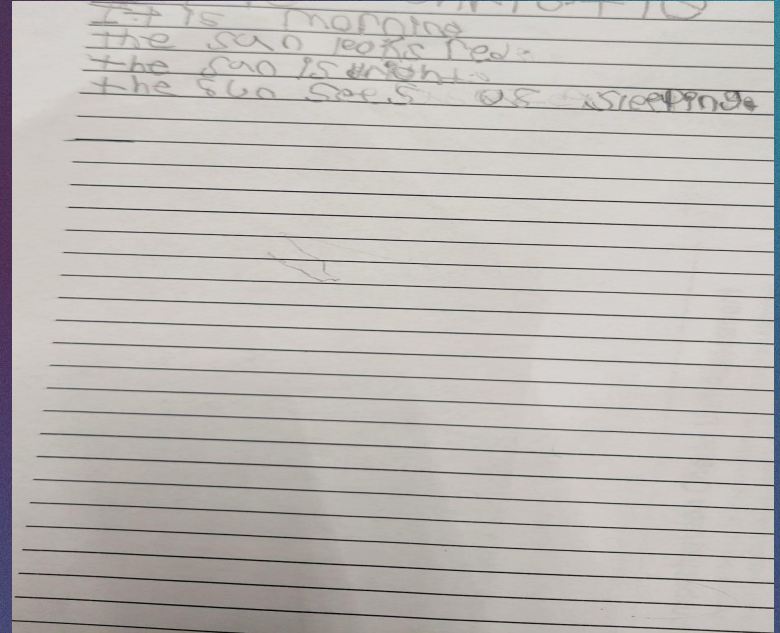 It is morning
the sun looks red.
the sun is bright.
the sun sees us sleeping.